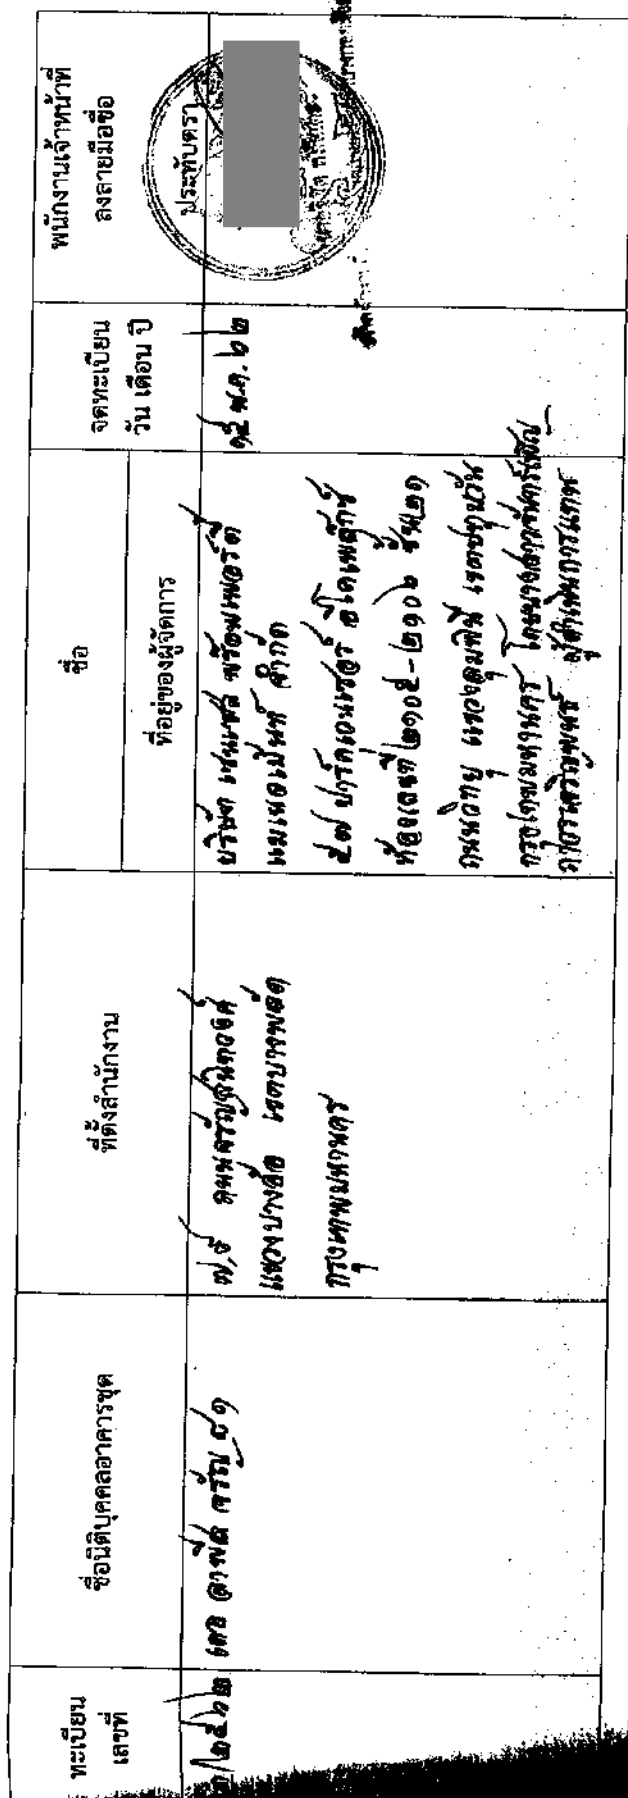 ทะเบียน
เลขที่
ชื่อนิติบุคคลอาคารชุด
ที่ตั้งสำนักงาน
ชื่อ
ที่อยู่ของผู้จัดการ
จดทะเบียน
วัน เดือน ปี
พนักงานเจ้าหน้าที่
ลงลายมือชื่อ
ประทับตรา
/๒๕๖๒
เดอ ลาพีส จรัญ ๘๑
๗,๙ ถนนจรัญสนิทวงศ์
แขวงบางอ้อ เขตบางพลัด
กรุงเทพมหานคร
บริษัท เซนเซส พร็อพเพอร์ตี้
แมเนจเม้นท์ จำกัด
๕๗ ปาร์คเวนเชอร์ อีโคเพล็กซ์
ห้องเลขที่ ๒๑๐๕-๒๑๐๖ ชั้น ๒๑
ถนนวิทยุ แขวงลุมพินี เขตปทุมวัน
กรุงเทพมหานคร โดยนางสาวจันทร์เพ็ญ
ผู้ดำเนินการแทน
๑๕ พ.ค. ๖๒